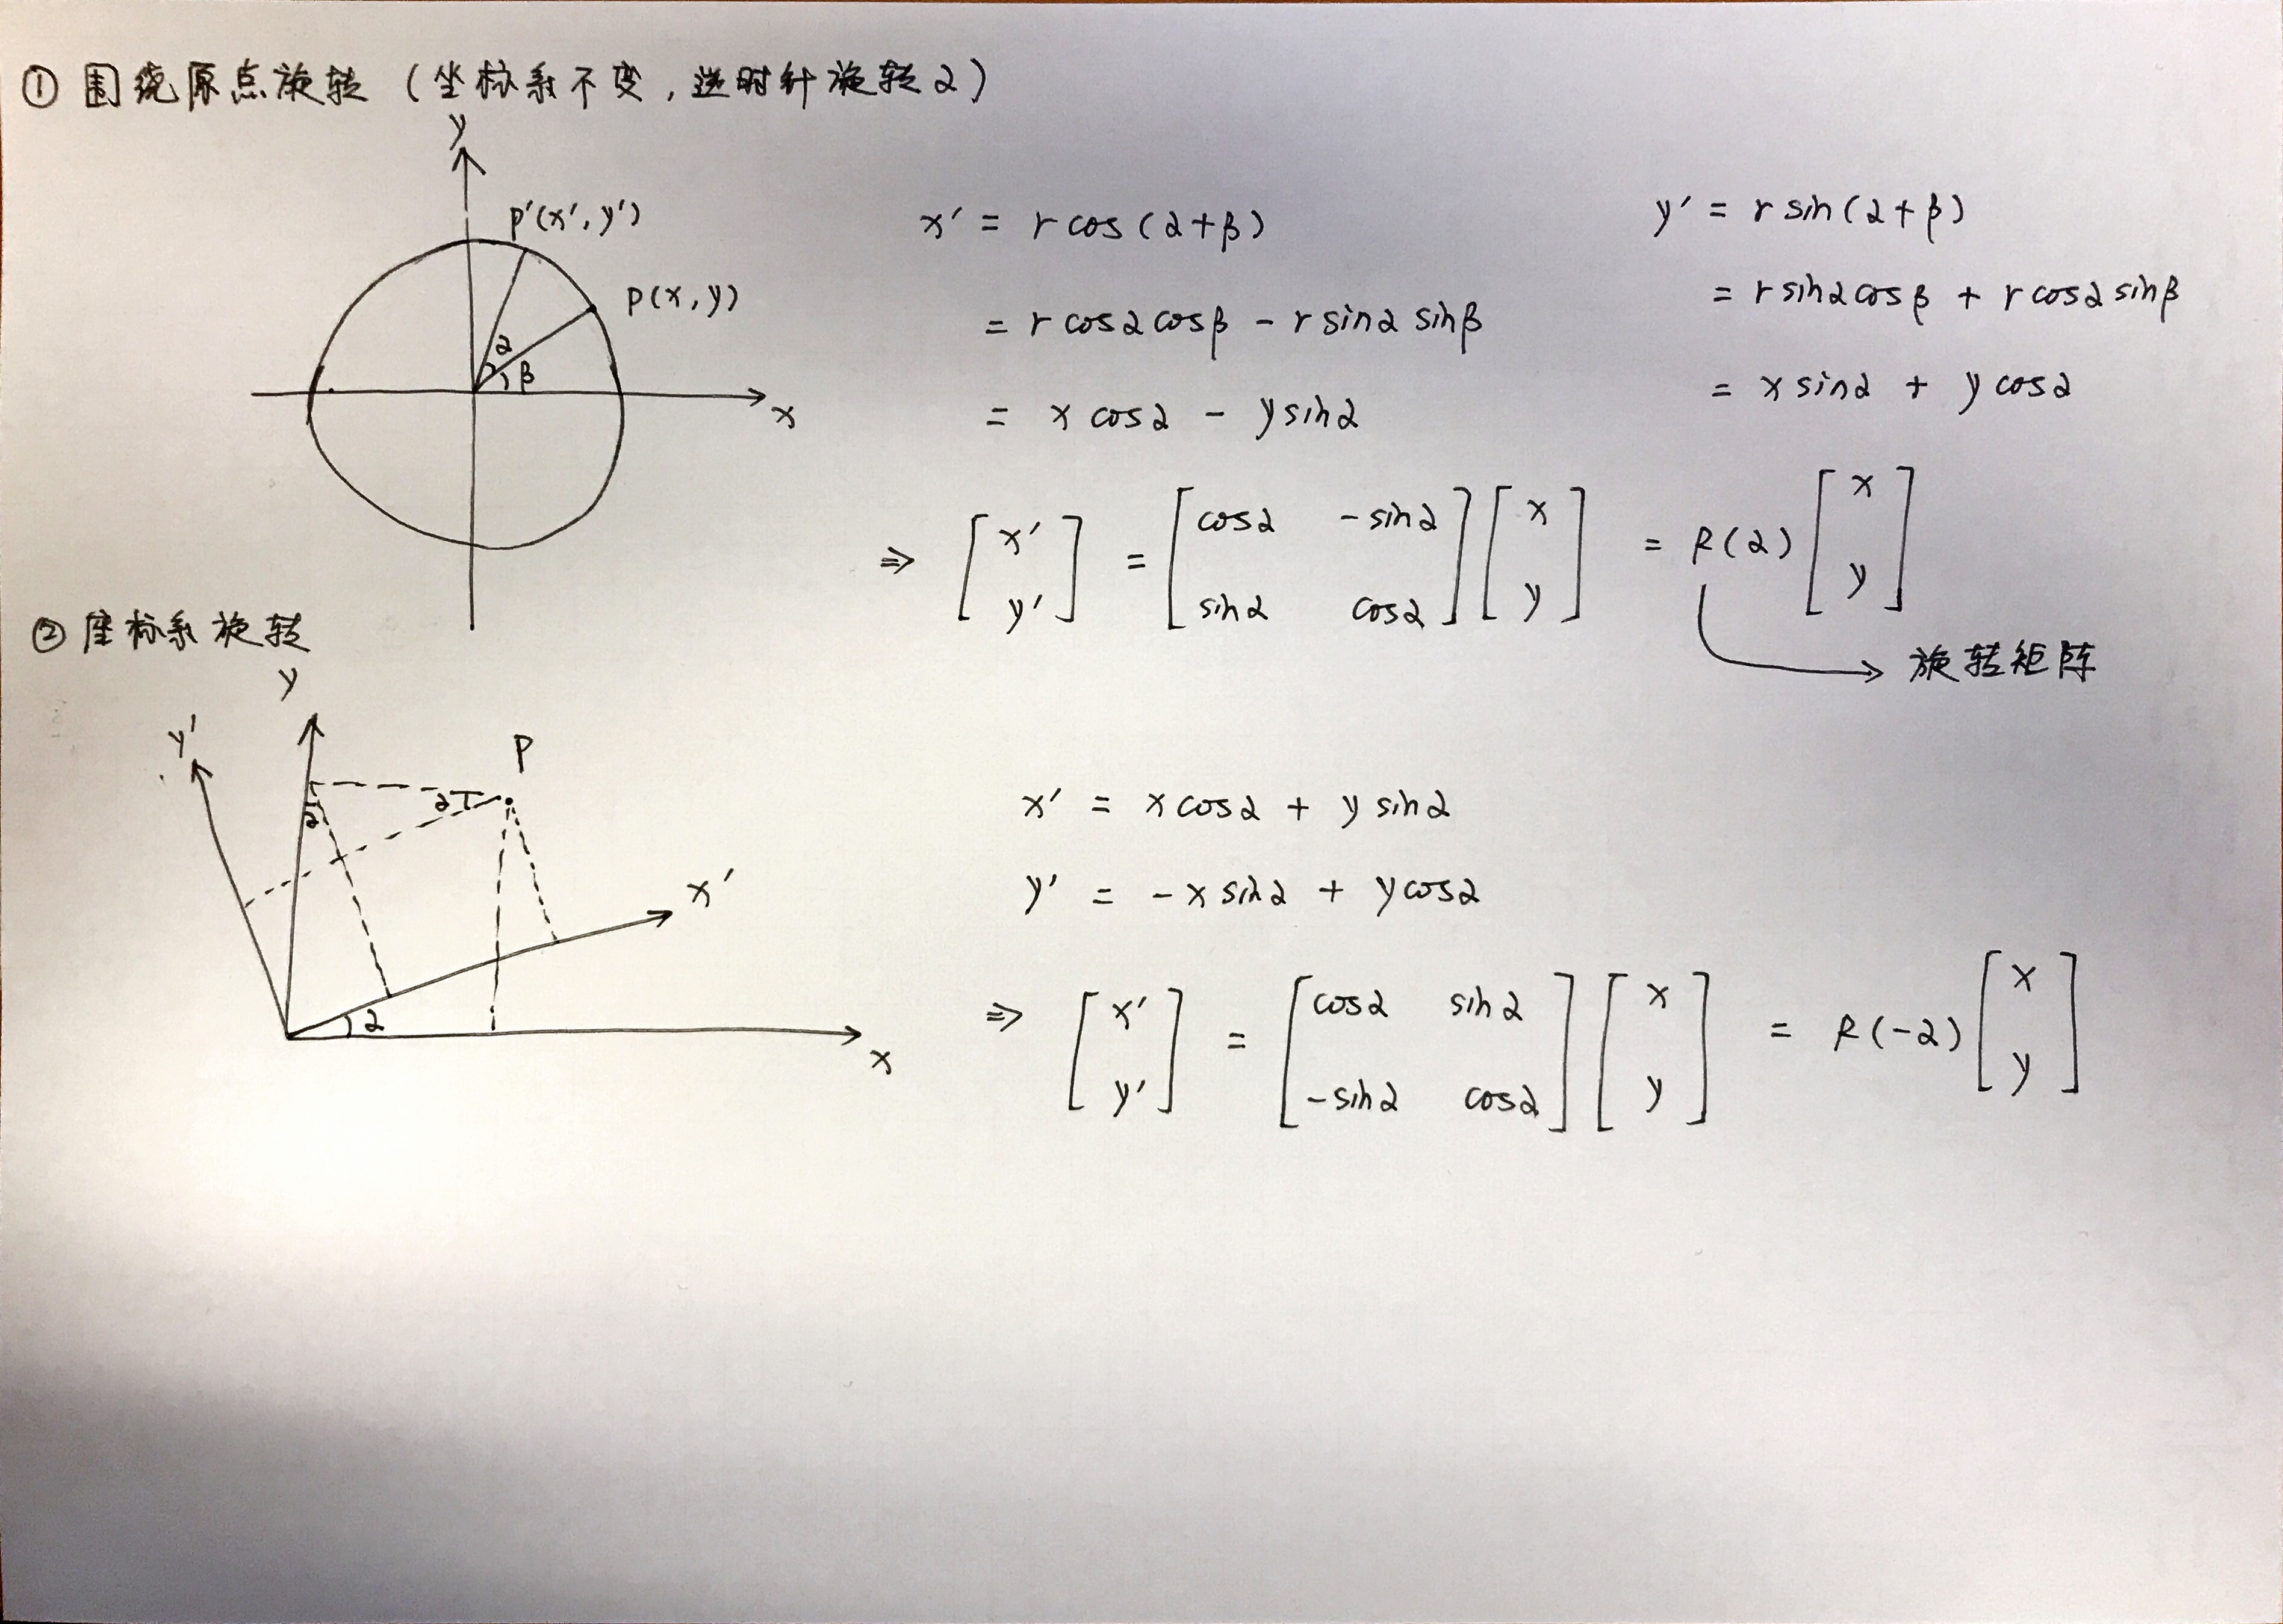 ① 围绕原点旋转（坐标系不变，逆时针旋转α）
y
p'(x', y')
p(x, y)
α
β
x
x' = r cos(α+β)
= r cosα cosβ - r sinα sinβ
= x cosα - y sinα
y' = r sin(α+β)
= r sinα cosβ + r cosα sinβ
= x sinα + y cosα
⇒ [x' y'] = [cosα -sinα sinα cosα] [x y] = R(α) [x y]
旋转矩阵
② 座标系旋转
y
y'
P
α
α
x'
α
x
x' = x cosα + y sinα
y' = -x sinα + y cosα
⇒ [x' y'] = [cosα sinα -sinα cosα] [x y] = R(-α) [x y]